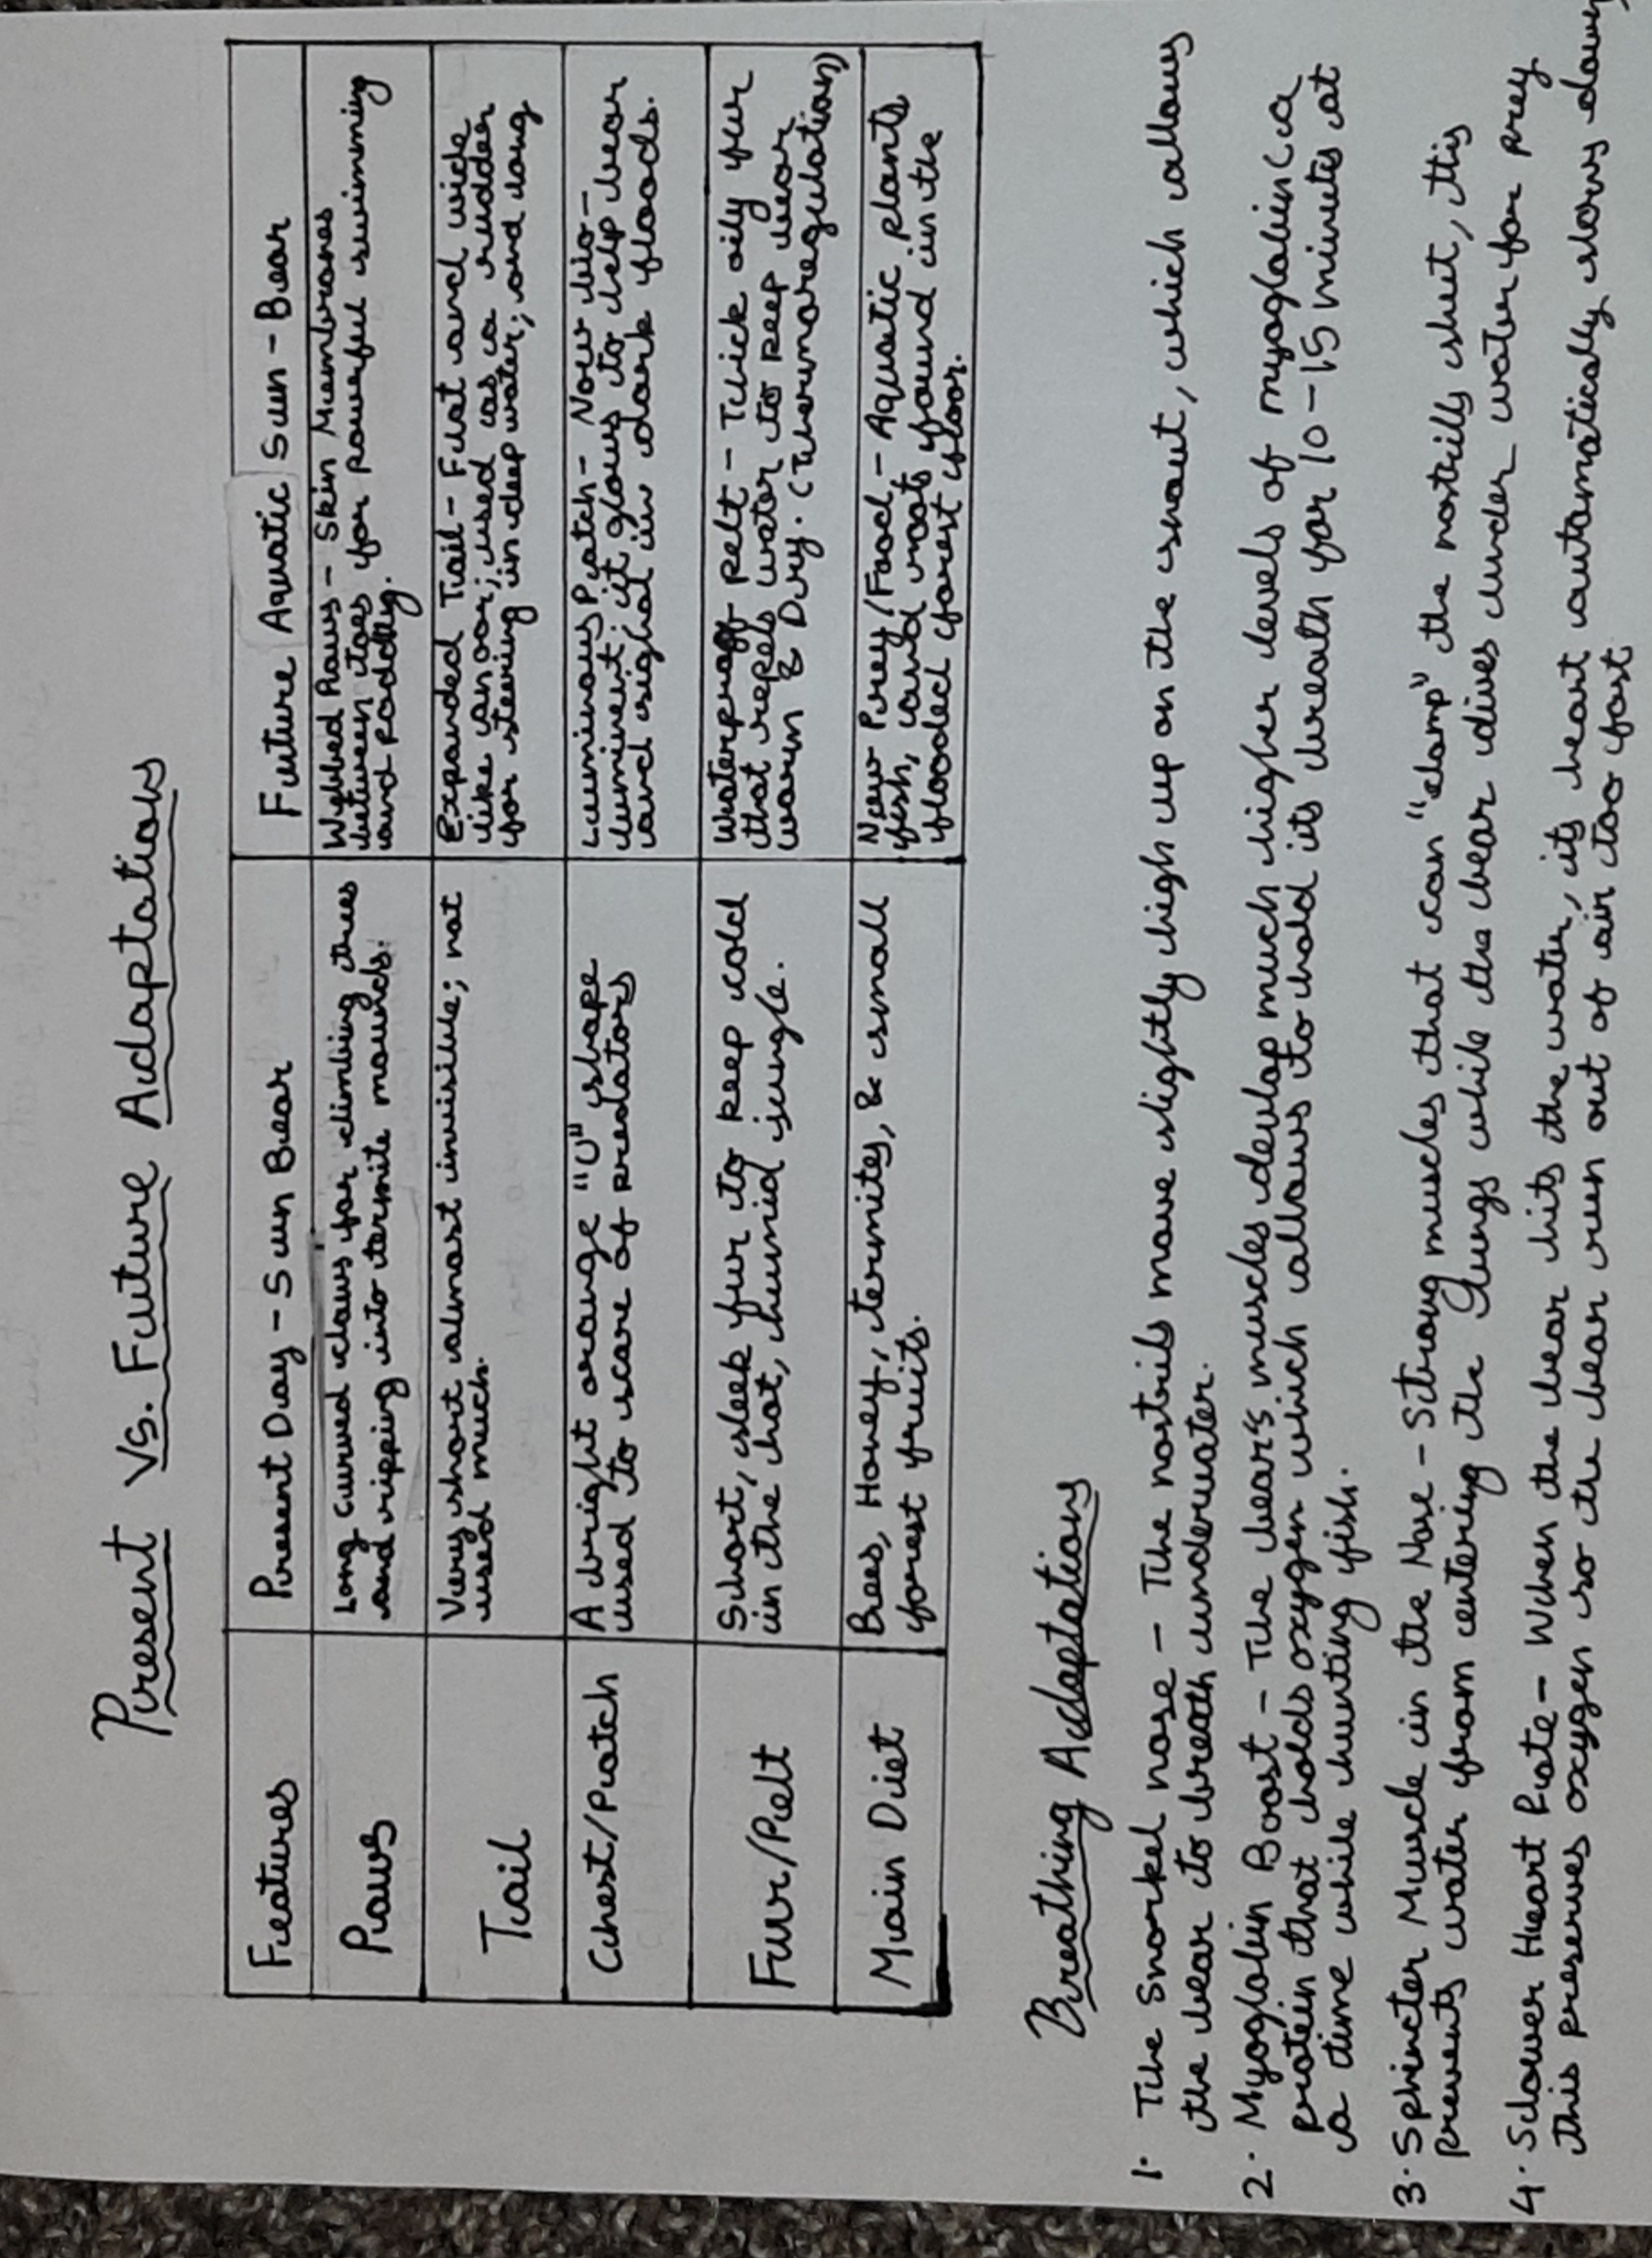 Present Vs. Future Adaptations
Features
Present Day - Sun Bear
Future Aquatic Sun - Bear
Paws
Long curved claws for climbing trees
and ripping into termite mounds.
Webbed Paws - Skin Membranes
between toes for powerful swimming
and paddling.
Tail
Very short almost invisible; not
used much.
Expanded Tail - Flat and wide
like an oar; used as a rudder
for steering in deep water; and long
Chest/Patch
A bright orange "U" shape
used to scare of predators
Luminous Patch - Now bio-
luminent; it glows to help bear
and signal in dark floods.
Fur/Pelt
Short, sleek fur to keep cold
in the hot, humid jungle.
Waterproof Pelt - Thick oily fur
that repels water to keep bear
warm & Dry. (Thermoregulation)
Main Diet
Bees, Honey, termites, & small
forest fruits.
New Prey/Food - Aquatic plants,
fish, and roots found in the
flooded forest floor.
Breathing Adaptations
1. The Snorkel nose - The nostrils move slightly high up on the snout, which allows
the bear to breath underwater.
2. Myoglobin Boost - The bear's muscles devulop much higher levels of myoglobin (a
protein that holds oxygen which allows to hold its breath for 10-15 minutes at
a time while hunting fish.
3. Sphincter Muscle in the Nose - Strong muscles that can "clamp" the nostrils shut, this
prevents water from entering the lungs while the bear dives under water for prey
4. Slower Heart Rate - When the bear hits the water, its heart automatically slows down,
this preserves oxygen so the bear run out of air too fast